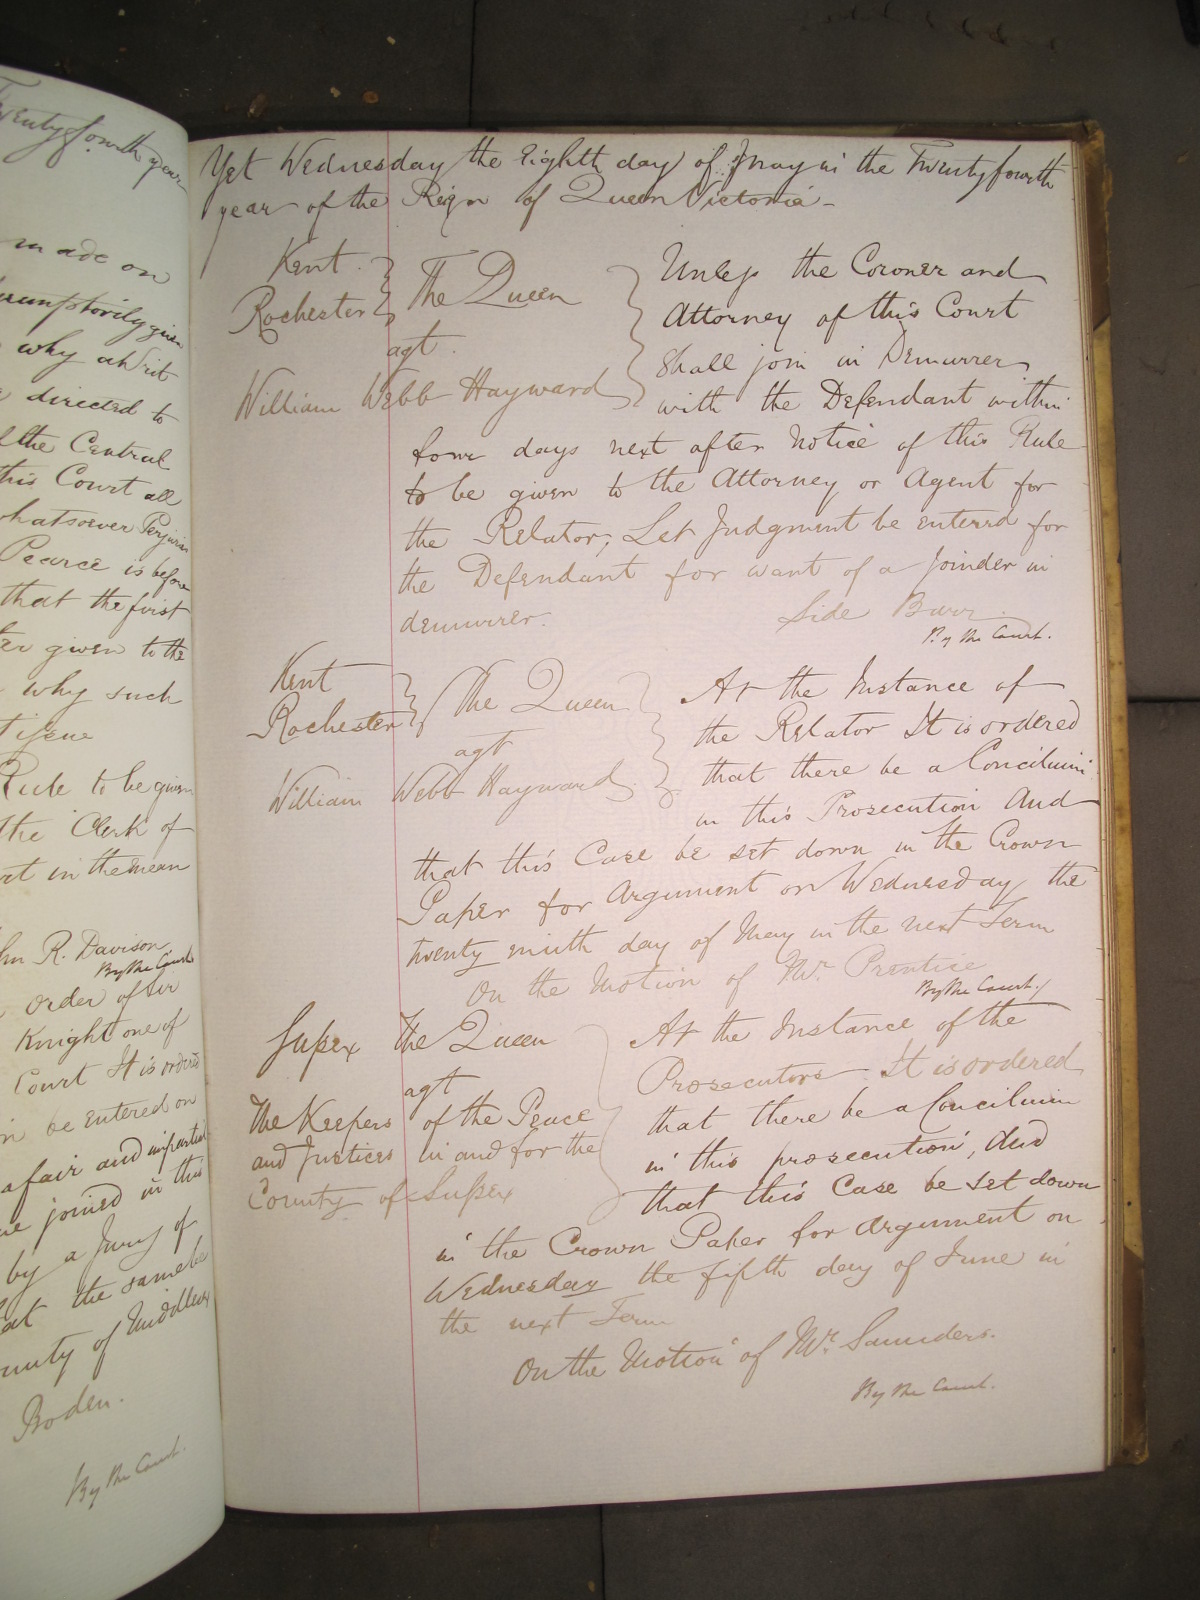 Twenty fourth year
made on
peremptorily given
why a Writ
directed to
of the Central
this Court all
whatsoever Perjuries
Pearce is before
that the first
given to the
why such
issue
Rule to be given
the Clerk of
in the mean
John R. Davison
By the Court
order of Sir
Knight one of
Court It is ordered
be entered on
a fair and impartial
joined in this
by a Jury of
that the same be
County of Middlesex
Boden.
By the Court.
Yet Wednesday the Eighth day of May in the Twenty fourth
year of the Reign of Queen Victoria –
Kent
Rochester
The Queen
agt.
William Webb Hayward
Unless the Coroner and
Attorney of this Court
shall join in Demurrer
with the Defendant within
four days next after Notice of this Rule
to be given to the Attorney or Agent for
the Relator, Let Judgment be entered for
the Defendant for want of a Joinder in
demurrer.
Side Barr.
By the Court.
Kent
Rochester
The Queen
agt
William Webb Hayward
At the Instance of
the Relator It is ordered
that there be a Concilium
in this Prosecution And
that this Case be set down in the Crown
Paper for Argument on Wednesday the
twenty ninth day of May in the next Term
On the Motion of Mr. Prentice
By the Court.
Sussex
The Queen
agt
The Keepers of the Peace
and Justices in and for the
County of Sussex
At the Instance of the
Prosecutors It is ordered
that there be a Concilium
in this prosecution, And
that this Case be set down
in the Crown Paper for Argument on
Wednesday the fifth day of June in
the next Term
On the Motion of Mr. Saunders.
By the Court.